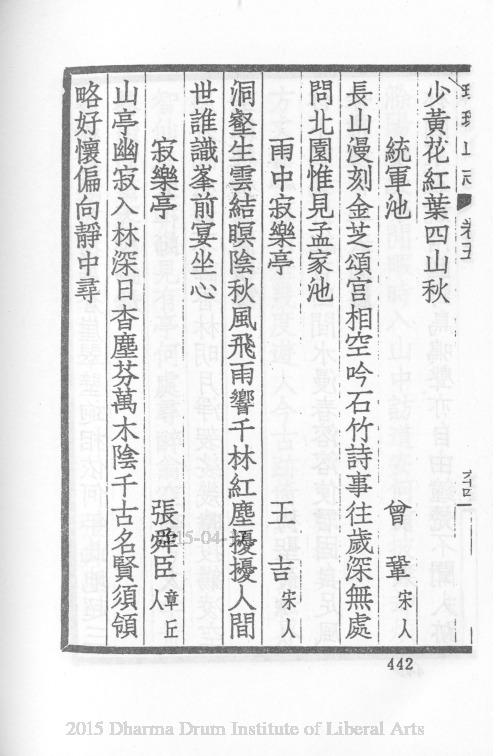 少黃花紅葉四山秋
統軍池 曾鞏 宋人
長山漫刻金芝頌宮相空吟石竹詩事往歲深無處
問北園惟見孟家池
雨中寂樂亭 王吉 宋人
洞壑生雲結暝陰秋風飛雨響千林紅塵擾擾人間
世誰識峯前宴坐心
寂樂亭 張舜臣 章丘人
山亭幽寂入林深日杳塵芬萬木陰千古名賢須領
略好懷偏向靜中尋
442
2015 Dharma Drum Institute of Liberal Arts